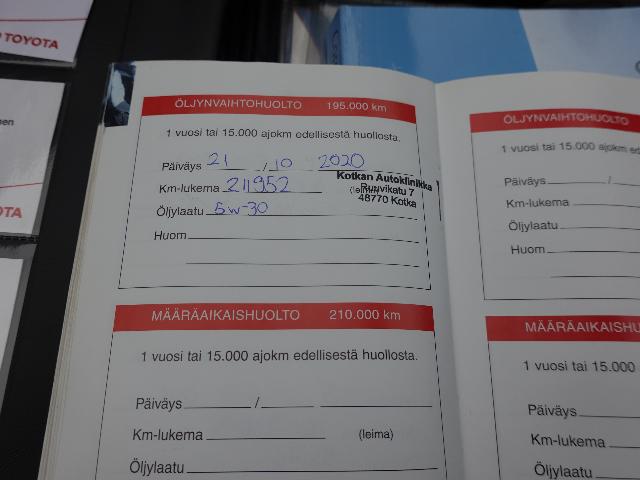 TOYOTA
ÖLJYNVAIHTOHUOLTO 195.000 km
1 vuosi tai 15.000 ajokm edellisestä huollosta.
Päiväys 21 / 10 2020
Km-lukema 211952 (leima)
Öljylaatu 5w-30
Huom
Kotkan Autoklinikka
Ruuvikatu 7
48770 Kotka
MÄÄRÄAIKAISHUOLTO 210.000 km
1 vuosi tai 15.000 ajokm edellisestä huollosta.
Päiväys /
Km-lukema (leima)
Öljylaatu
ÖLJYNVAIHTOHUOLTO
1 vuosi tai 15.000 ajokm edellises
Päiväys /
Km-lukema
Öljylaatu
Huom
MÄÄRÄAIKAISHU
1 vuosi tai 15.000
Päiväys
Km-lukema
Öljylaatu